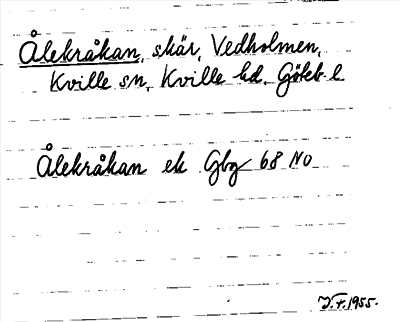 Ålekråkan, skär, Vedholmen,
Kville sn, Kville hd. Göteb l.
Ålekråkan ek Gbg 68 NO
1955.